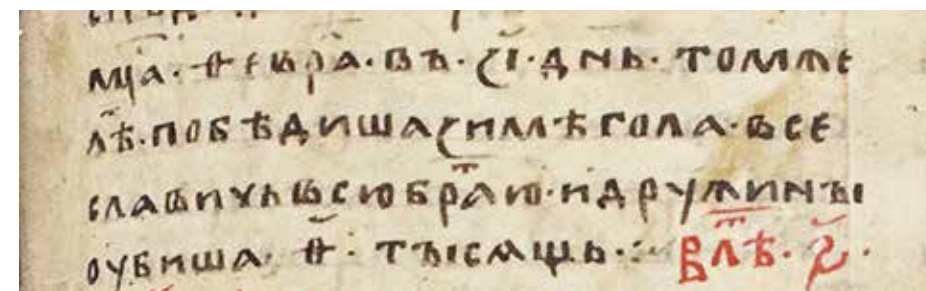 мц҃а· ѳеврⷶ·въ·ѕ҃і·днь· томже
лⷮѣ·побѣдишаꙁимѣгола·все
славичьвсюбраⷮю·идружинꙑ
оубиша· ѳ҃· тꙑсѧщь·:· влⷮѣ·